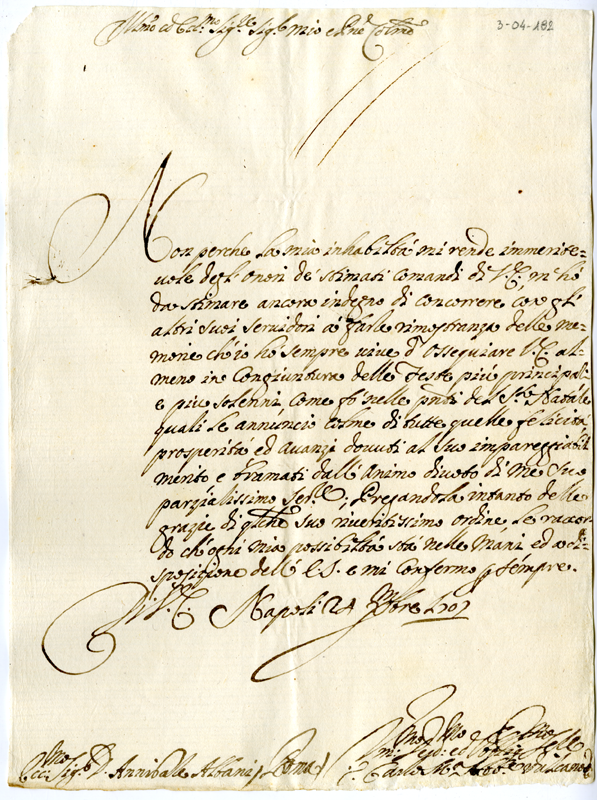 3-04-182
Ill.mo ed Ecc.mo Sig.re Sig.re mio e Pne Colmo
Non perche la mia inhabiltà mi rende immerite=
uole degl'onori de' stimati comandi di V.E., m'hò
da stimare ancora indegno di concorrere con gl'
altri suoi seruidori a' farle rimostranza delle me=
morie ch'io hò sempre viue d'osseguiare V.E. al=
meno in congiuntura delle feste più principali
e più solenni come fò nelle pnti del S.to Natale
quali le annuncio colme di tutte quelle felicità
prosperità ed auanzi douuti al suo impareggiabil
merito e bramati dall'Animo diuoto di me suo
parzialissimo ; Pregandola intanto delle
grazie di qlche suo riueritissimo ordine le raccor=
do ch'ogni mia possibiltà stà nelle mani ed a di=
sposizione dell'E.S. e mi confermo p sempre.
Di V.E. Napoli 24 Xbre 1701
Ecc.mo Sig.r D. Annibale Albani / Roma /
Carlo